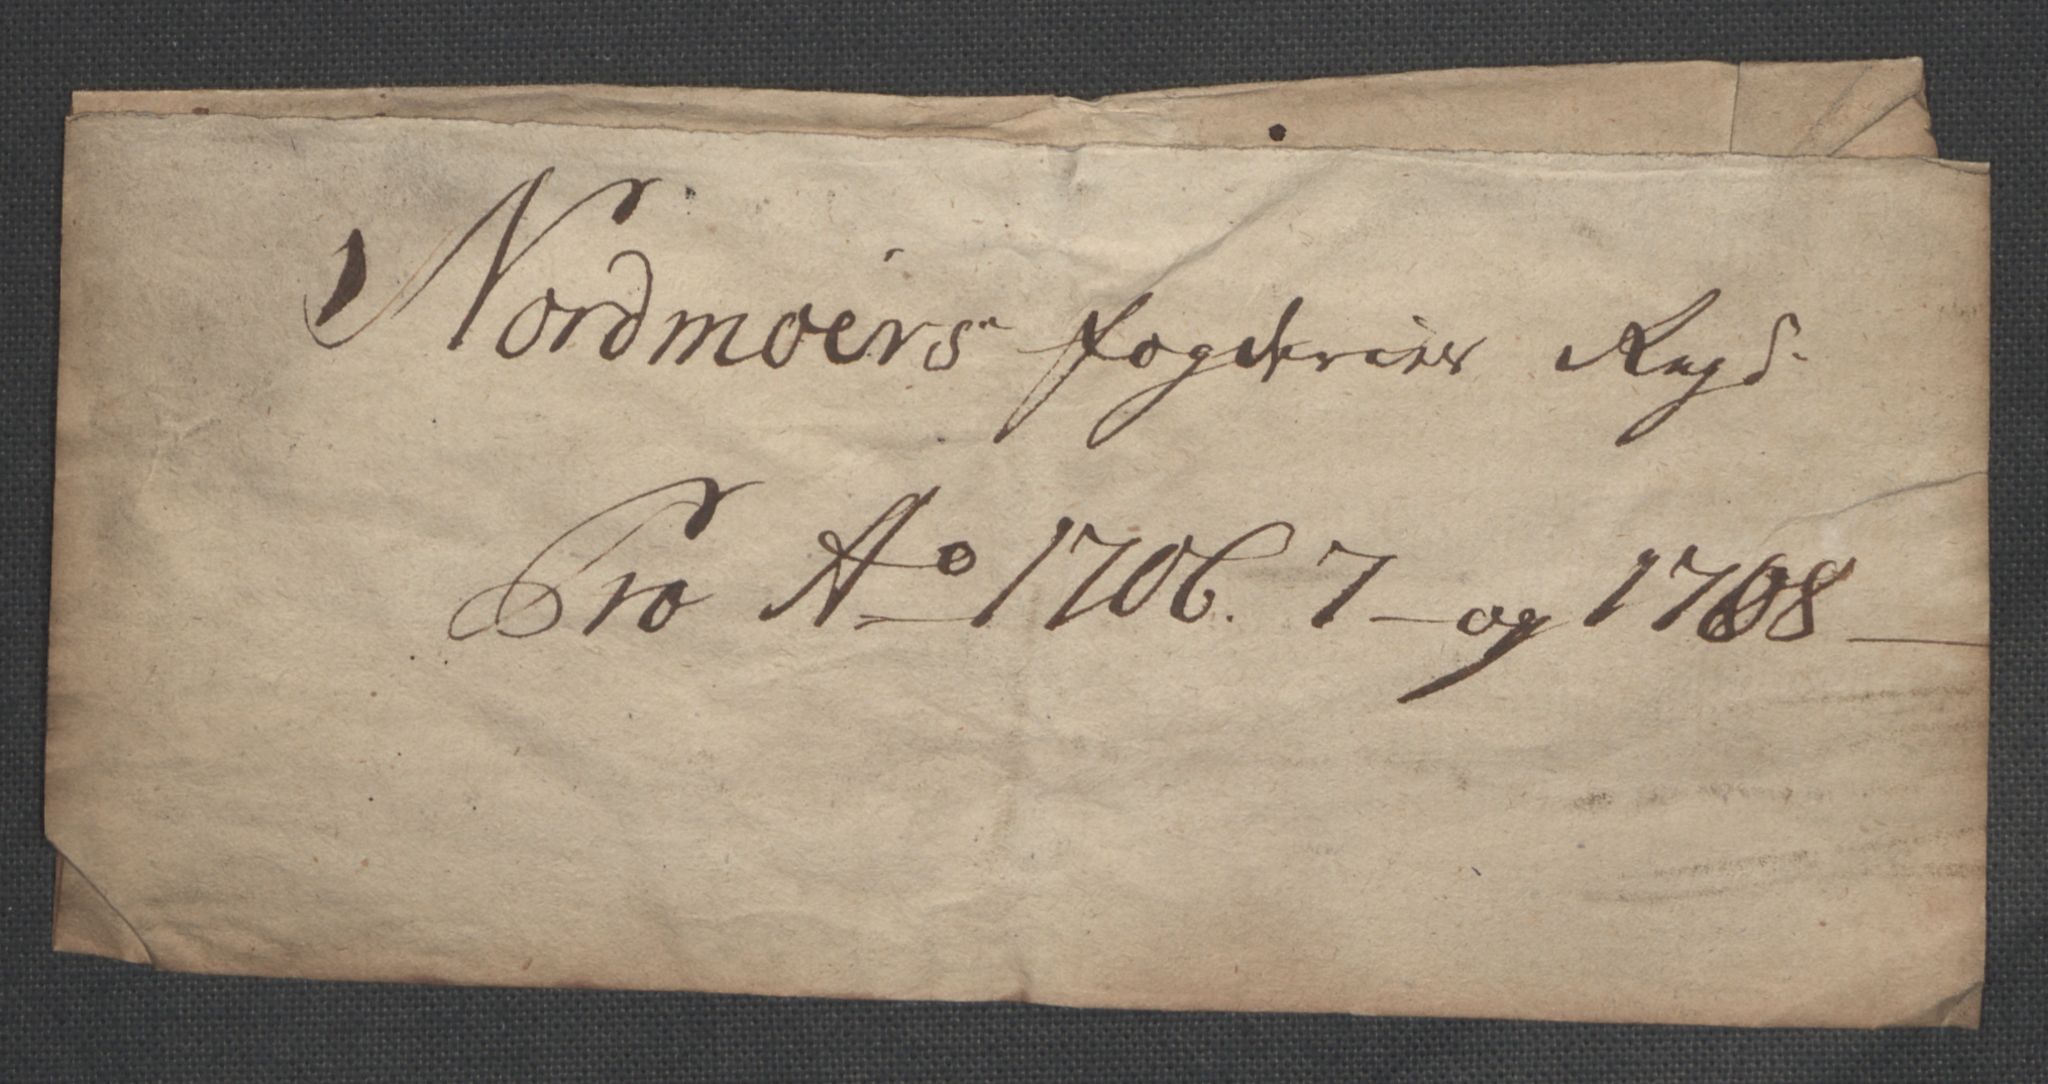 Nordmøers fogderies Regs.
Pro Ao 1706. 7 _ og 1708 _